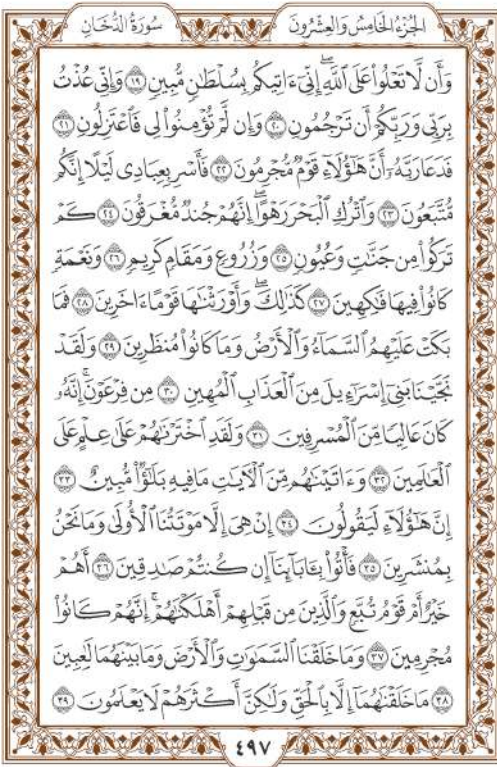 سُورَةُ الدُّخَانِ الجُزْءُ الخَامِسُ وَالعِشْرُونَ
وَأَن لَّا تَعْلُوا۟ عَلَى ٱللَّهِ ۖ إِنِّىٓ ءَاتِيكُم بِسُلْطَٰنٍ مُّبِينٍ ١٩ وَإِنِّى عُذْتُ
بِرَبِّى وَرَبِّكُمْ أَن تَرْجُمُونِ ٢٠ وَإِن لَّمْ تُؤْمِنُوا۟ لِى فَٱعْتَزِلُونِ ٢١
فَدَعَا رَبَّهُۥٓ أَنَّ هَٰٓؤُلَآءِ قَوْمٌ مُّجْرِمُونَ ٢٢ فَأَسْرِ بِعِبَادِى لَيْلًا إِنَّكُم
مُّتَّبَعُونَ ٢٣ وَٱتْرُكِ ٱلْبَحْرَ رَهْوًا ۖ إِنَّهُمْ جُندٌ مُّغْرَقُونَ ٢٤ كَمْ
تَرَكُوا۟ مِن جَنَّٰتٍ وَعُيُونٍ ٢٥ وَزُرُوعٍ وَمَقَامٍ كَرِيمٍ ٢٦ وَنَعْمَةٍ
كَانُوا۟ فِيهَا فَٰكِهِينَ ٢٧ كَذَٰلِكَ ۖ وَأَوْرَثْنَٰهَا قَوْمًا ءَاخَرِينَ ٢٨ فَمَا
بَكَتْ عَلَيْهِمُ ٱلسَّمَآءُ وَٱلْأَرْضُ وَمَا كَانُوا۟ مُنظَرِينَ ٢٩ وَلَقَدْ
نَجَّيْنَا بَنِىٓ إِسْرَٰٓءِيلَ مِنَ ٱلْعَذَابِ ٱلْمُهِينِ ٣٠ مِن فِرْعَوْنَ ۚ إِنَّهُۥ
كَانَ عَالِيًا مِّنَ ٱلْمُسْرِفِينَ ٣١ وَلَقَدِ ٱخْتَرْنَٰهُمْ عَلَىٰ عِلْمٍ عَلَى
ٱلْعَٰلَمِينَ ٣٢ وَءَاتَيْنَٰهُم مِّنَ ٱلْءَايَٰتِ مَا فِيهِ بَلَٰٓؤٌا۟ مُّبِينٌ ٣٣
إِنَّ هَٰٓؤُلَآءِ لَيَقُولُونَ ٣٤ إِنْ هِىَ إِلَّا مَوْتَتُنَا ٱلْأُولَىٰ وَمَا نَحْنُ
بِمُنشَرِينَ ٣٥ فَأْتُوا۟ بِـَٔابَآئِنَآ إِن كُنتُمْ صَٰدِقِينَ ٣٦ أَهُمْ
خَيْرٌ أَمْ قَوْمُ تُبَّعٍ وَٱلَّذِينَ مِن قَبْلِهِمْ ۚ أَهْلَكْنَٰهُمْ ۖ إِنَّهُمْ كَانُوا۟
مُجْرِمِينَ ٣٧ وَمَا خَلَقْنَا ٱلسَّمَٰوَٰتِ وَٱلْأَرْضَ وَمَا بَيْنَهُمَا لَٰعِبِينَ
٣٨ مَا خَلَقْنَٰهُمَآ إِلَّا بِٱلْحَقِّ وَلَٰكِنَّ أَكْثَرَهُمْ لَا يَعْلَمُونَ ٣٩
٤٩٧